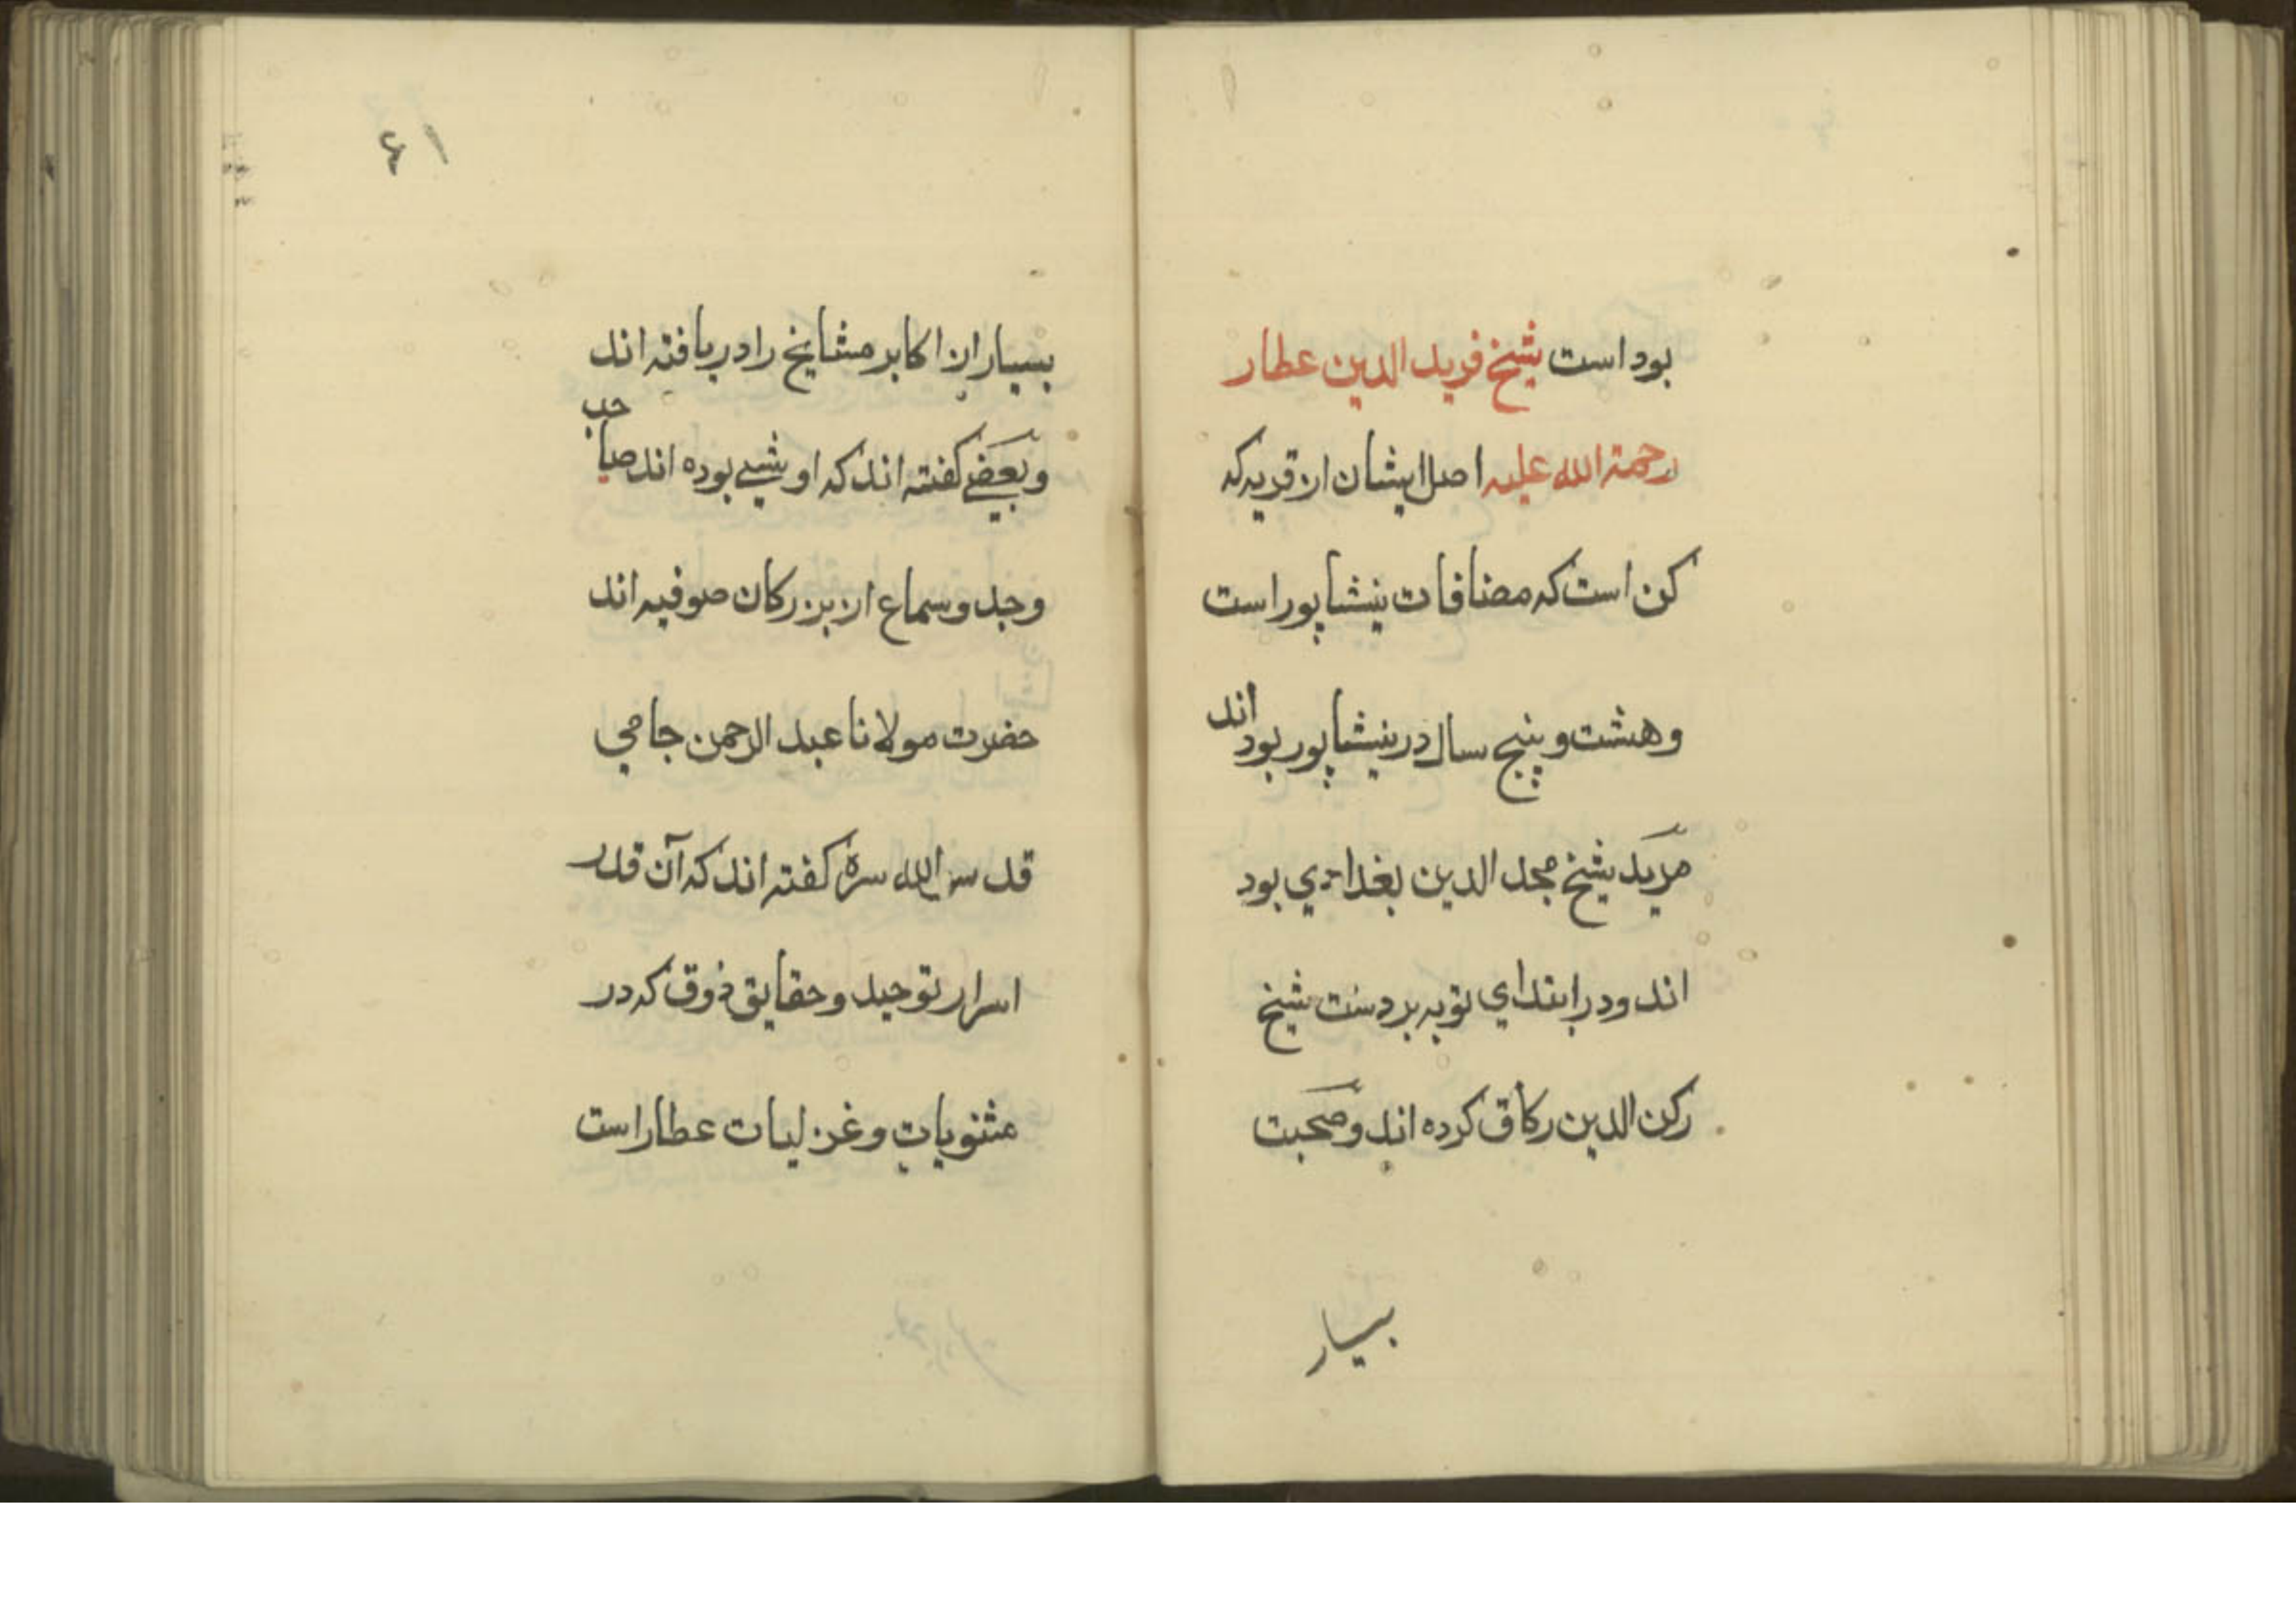 بود است شیخ فرید الدین عطار
رحمة الله علیه اصل ایشان از قریه که
کن است که مضافات نیشاپور است
و هشت و پنج سال در نیشاپور بود اند
مرید شیخ مجد الدین بغدادي بود
اند و در ابتداي توبه بر دست شیخ
رکن الدین رکاق کرده اند و صحبت
بسیار
۶۱
بسیار از اکابر مشایخ را دریافته اند
و بعضے گفته اند که اویسے بوده اند صاحب
وجد و سماع از بزرکان صوفیه اند
حضرت مولانا عبد الرحمن جامي
قدس الله سره گفته اند که آن قدر
اسرار توحید و حقایق ذوق که در
مثنویات و غزلیات عطار است